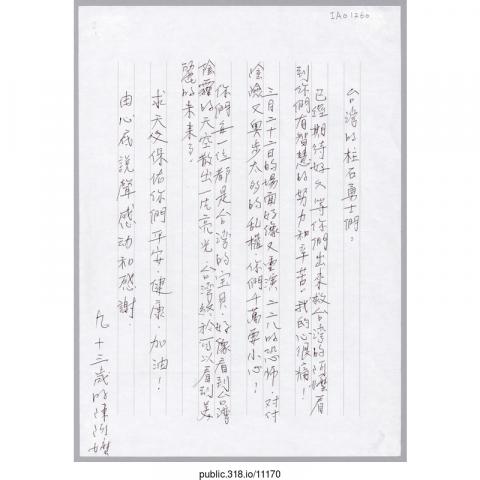 IA01260
台灣的柱石勇士們：
已經期待好久等你們出來救台灣的阿嬤看
到你們有智慧的努力和辛苦！我的心很痛！
三月二十三日的場面好像又重演二二八的恐怖．对付
陰險又奧步太多的乱權．你們千萬要小心！
你們每一位都是台灣的宝貝．好像看到台灣
陰霾的天空散出一片亮光 台灣終於可以看到美
麗的未來了．
求天父保佑你們平安．健康．加油！
由心底說聲感动和感謝．
九十三歲的陳阿嬤
public.318.io/11170